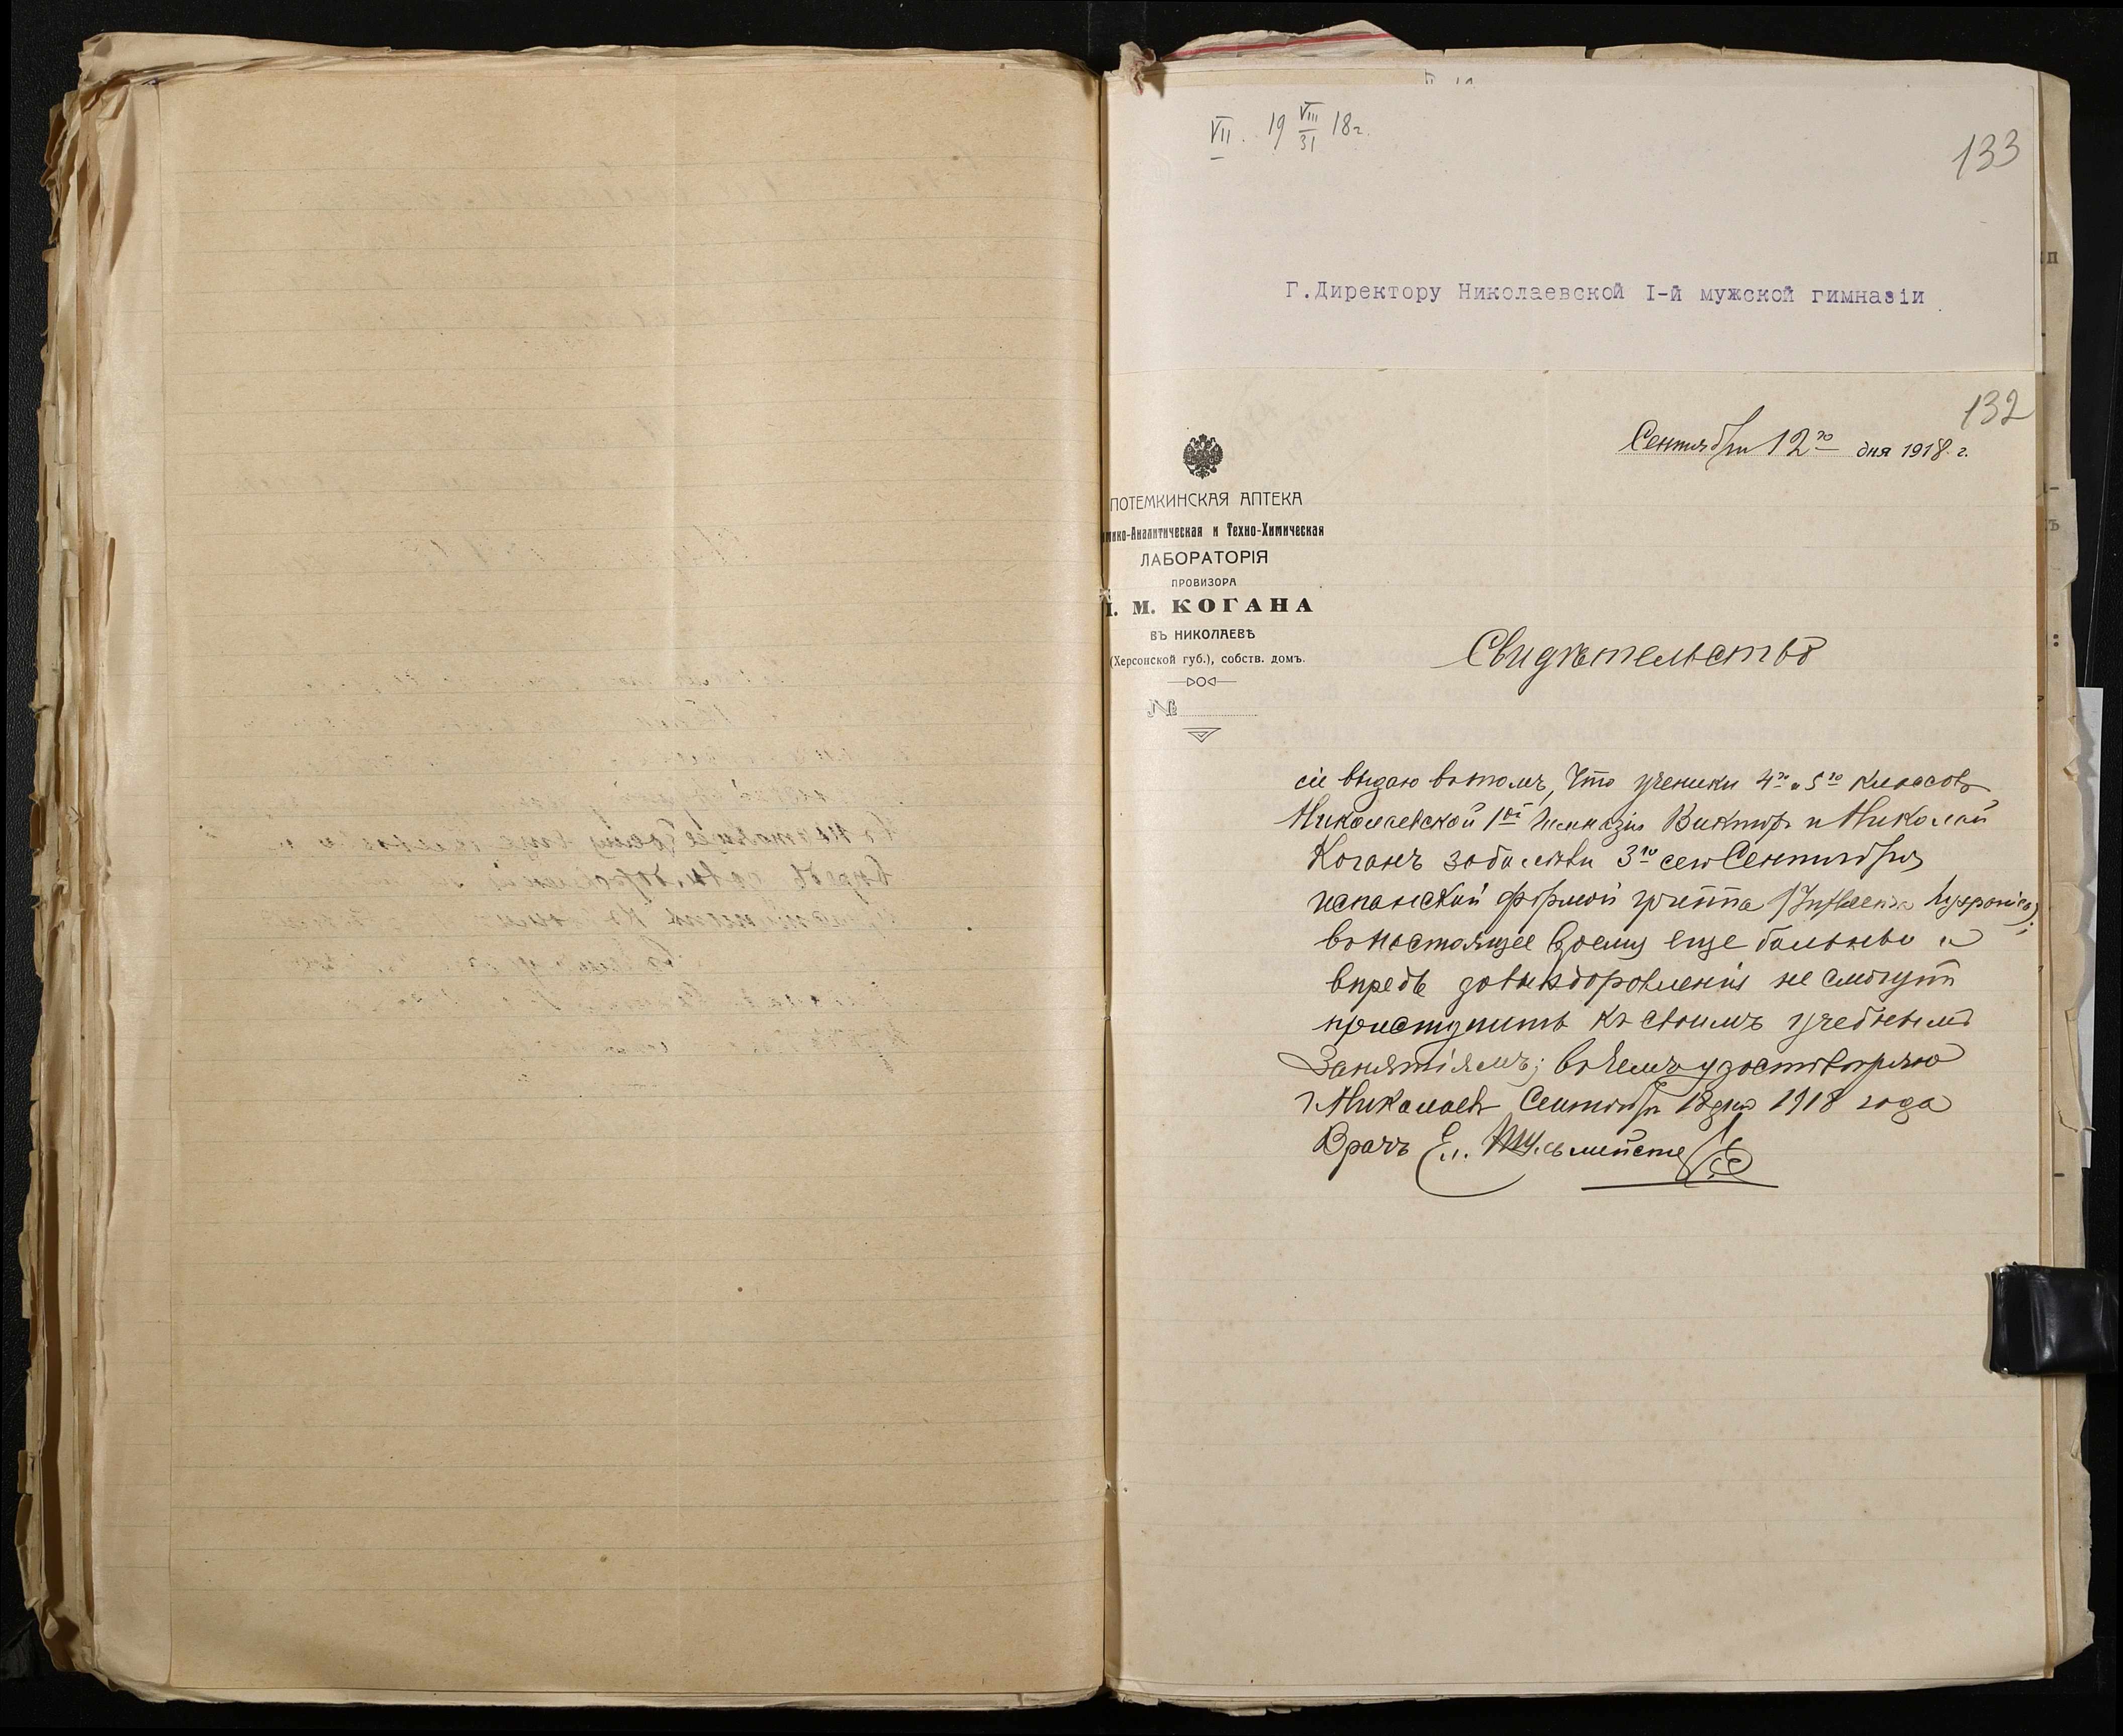 VII. 19 VIII/31 18г.
133
Г.Директору Николаевской I-й мужской гимназіи
132
Сентября 12го дня 1918 г.
ПОТЕМКИНСКАЯ АПТЕКА
мико-Аналитическая и Техно-Химическая
ЛАБОРАТОРІЯ
ПРОВИЗОРА
І. М. КОГАНА
ВЪ НИКОЛАЕВѢ
(Херсонской губ.), собств. домъ.
№
Свидѣтельство
сіе выдаю въ томъ, что ученики 4го и 5го классовъ
Николаевской 1ой Гимназіи Викторъ и Николай
Коганъ заболѣли 3го сего Сентября
испанской формой гриппа (Influenza
въ настоящее время еще больны и
впредь до выздоровленія не смогутъ
приступить къ своимъ учебнымъ
занятіямъ; въ чемъ удостовѣряю
г. Николаевъ Сентября 18 дня 1918 года
Врачъ